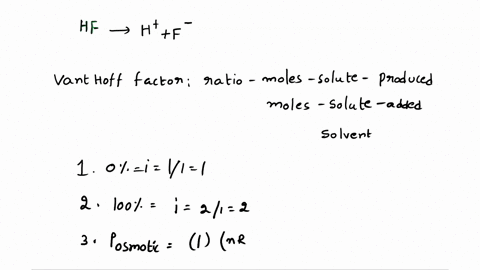 HF → H⁺ + F⁻
Vant Hoff factor: ratio - moles - solute - produced
moles - solute - added
Solvent
1. 0% = i = 1/1 = 1
2. 100% = i = 2/1 = 2
3. Posmotic = (1) (nR